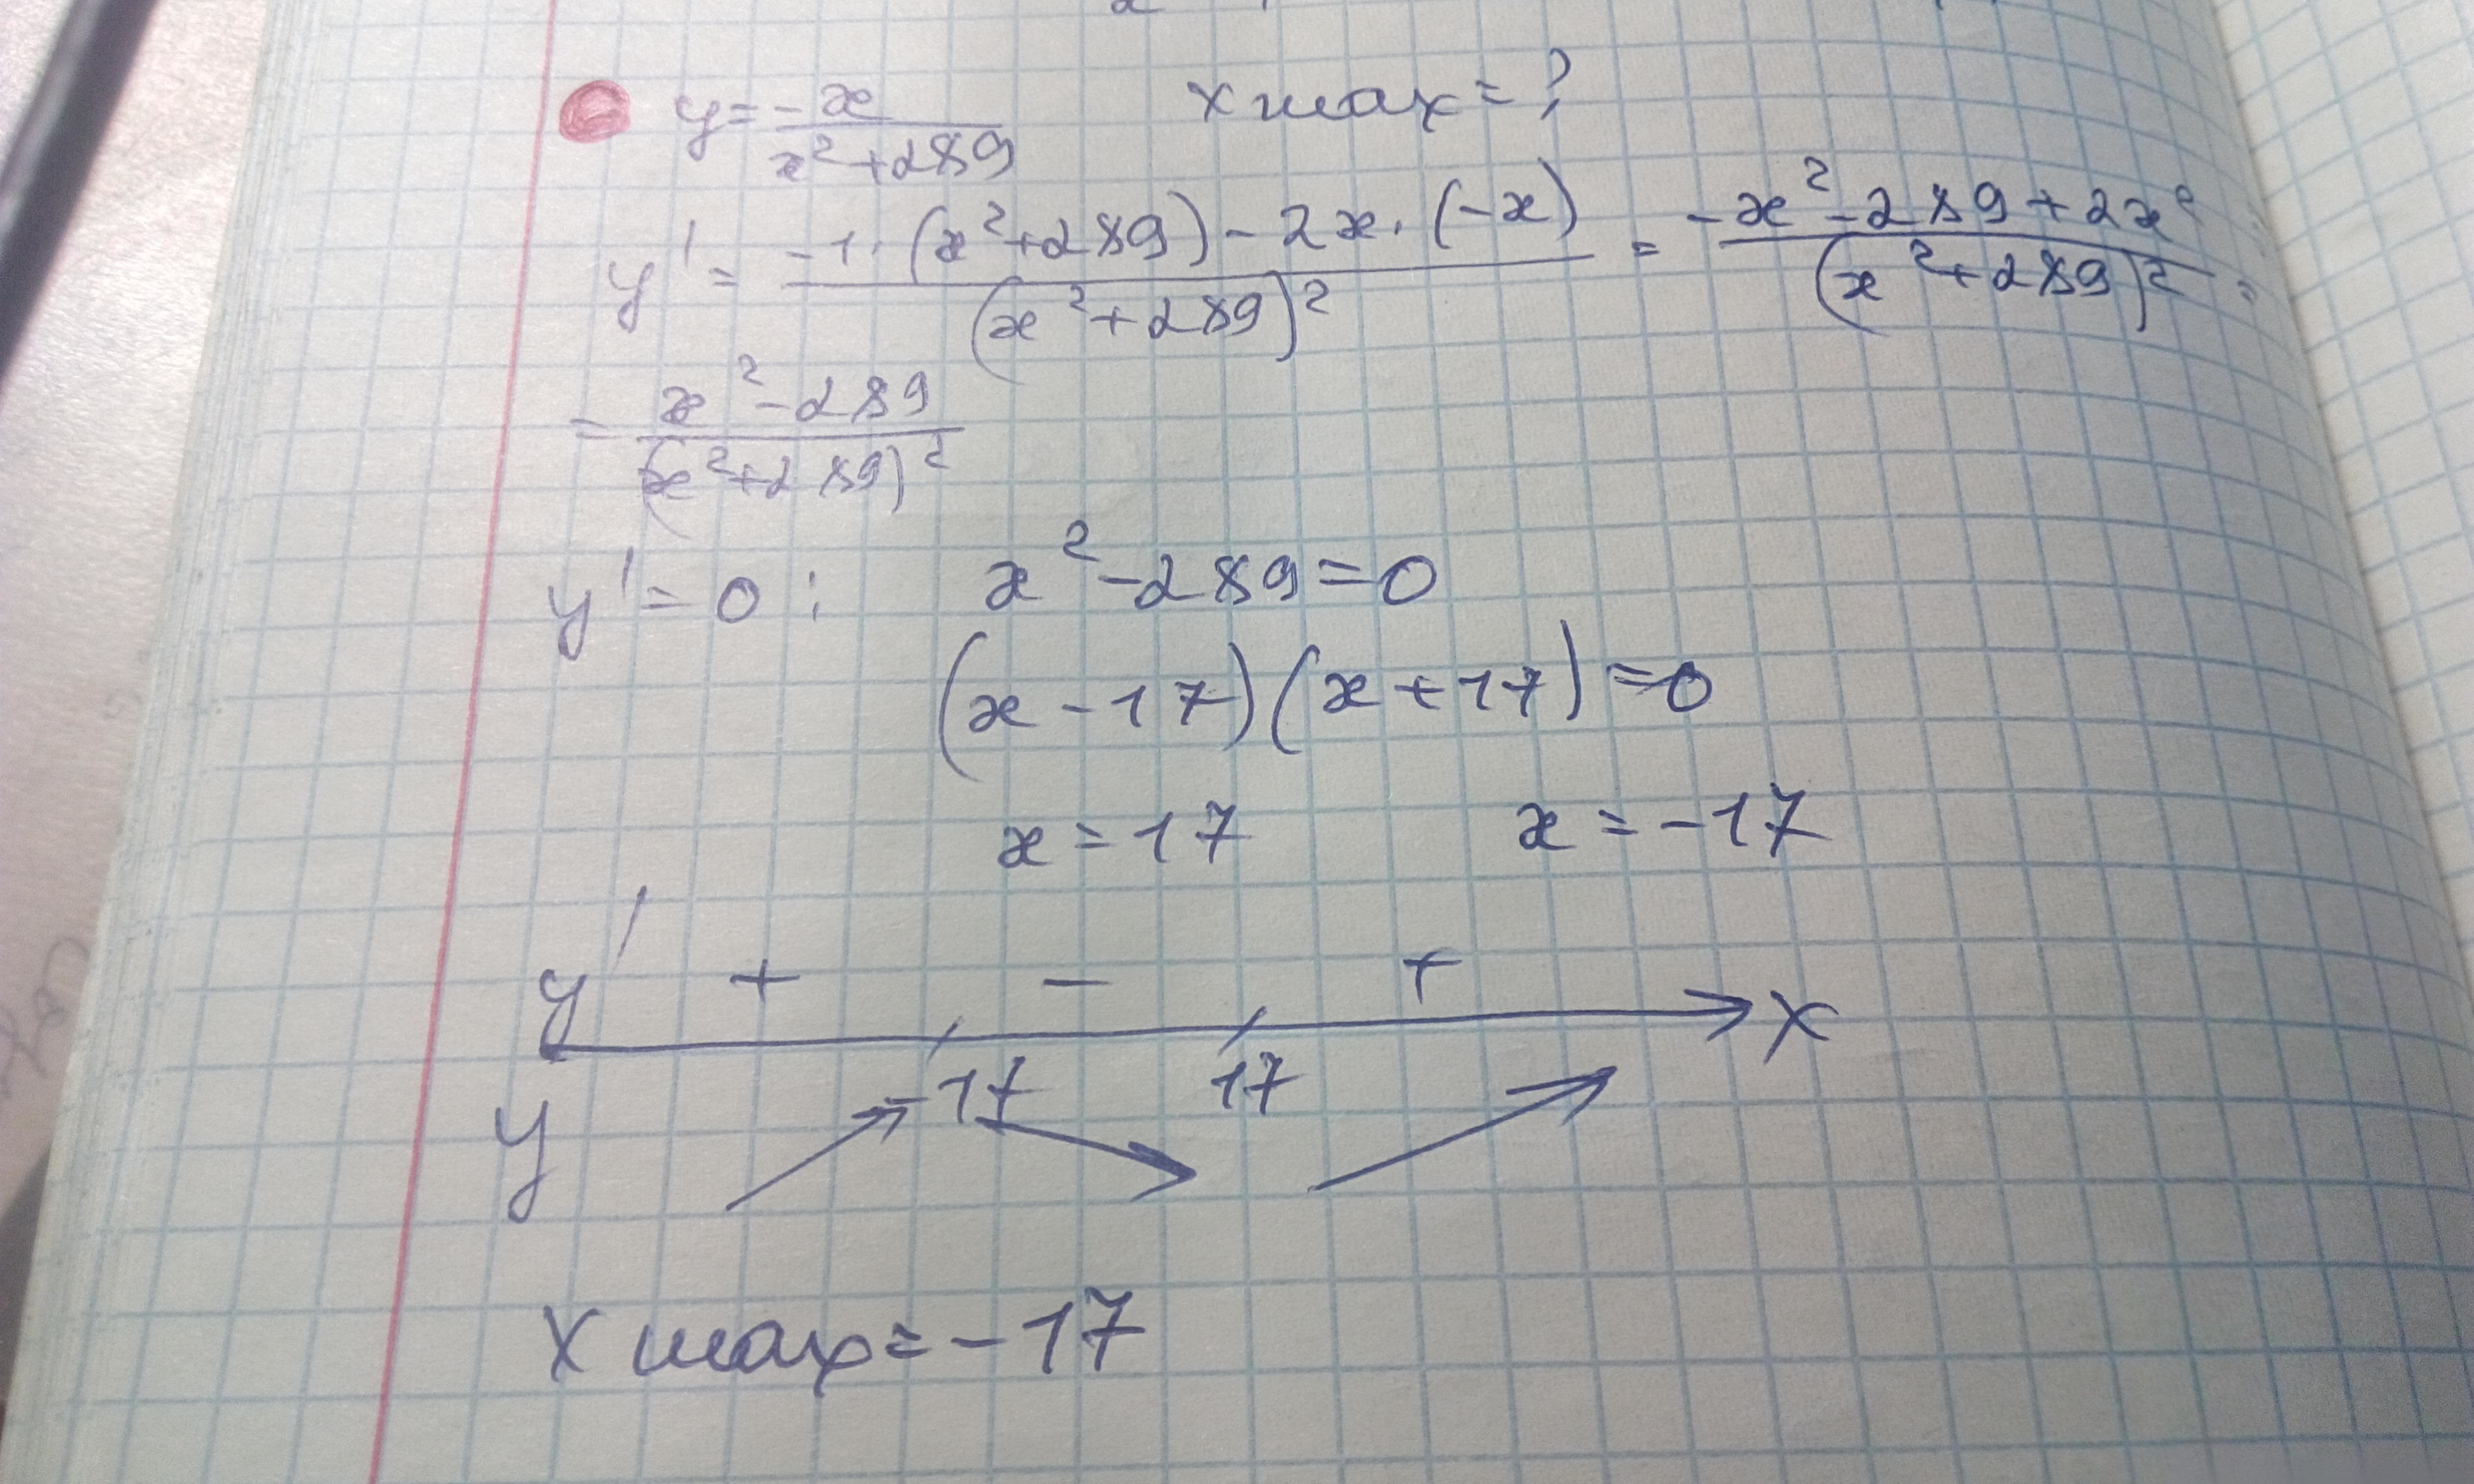 y = -x / x² + 289    x max = ?
y' = -1 · (x² + 289) - 2x · (-x) / (x² + 289)² = -x² - 289 + 2x² / (x² + 289)² =
= x² - 289 / (x² + 289)²
y' = 0 :    x² - 289 = 0
(x - 17)(x + 17) = 0
x = 17    x = -17
y' + - + x
-17 17
y
x max = -17